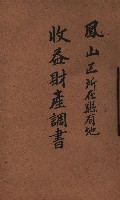 鳳山區所在縣有地
收益財產調書